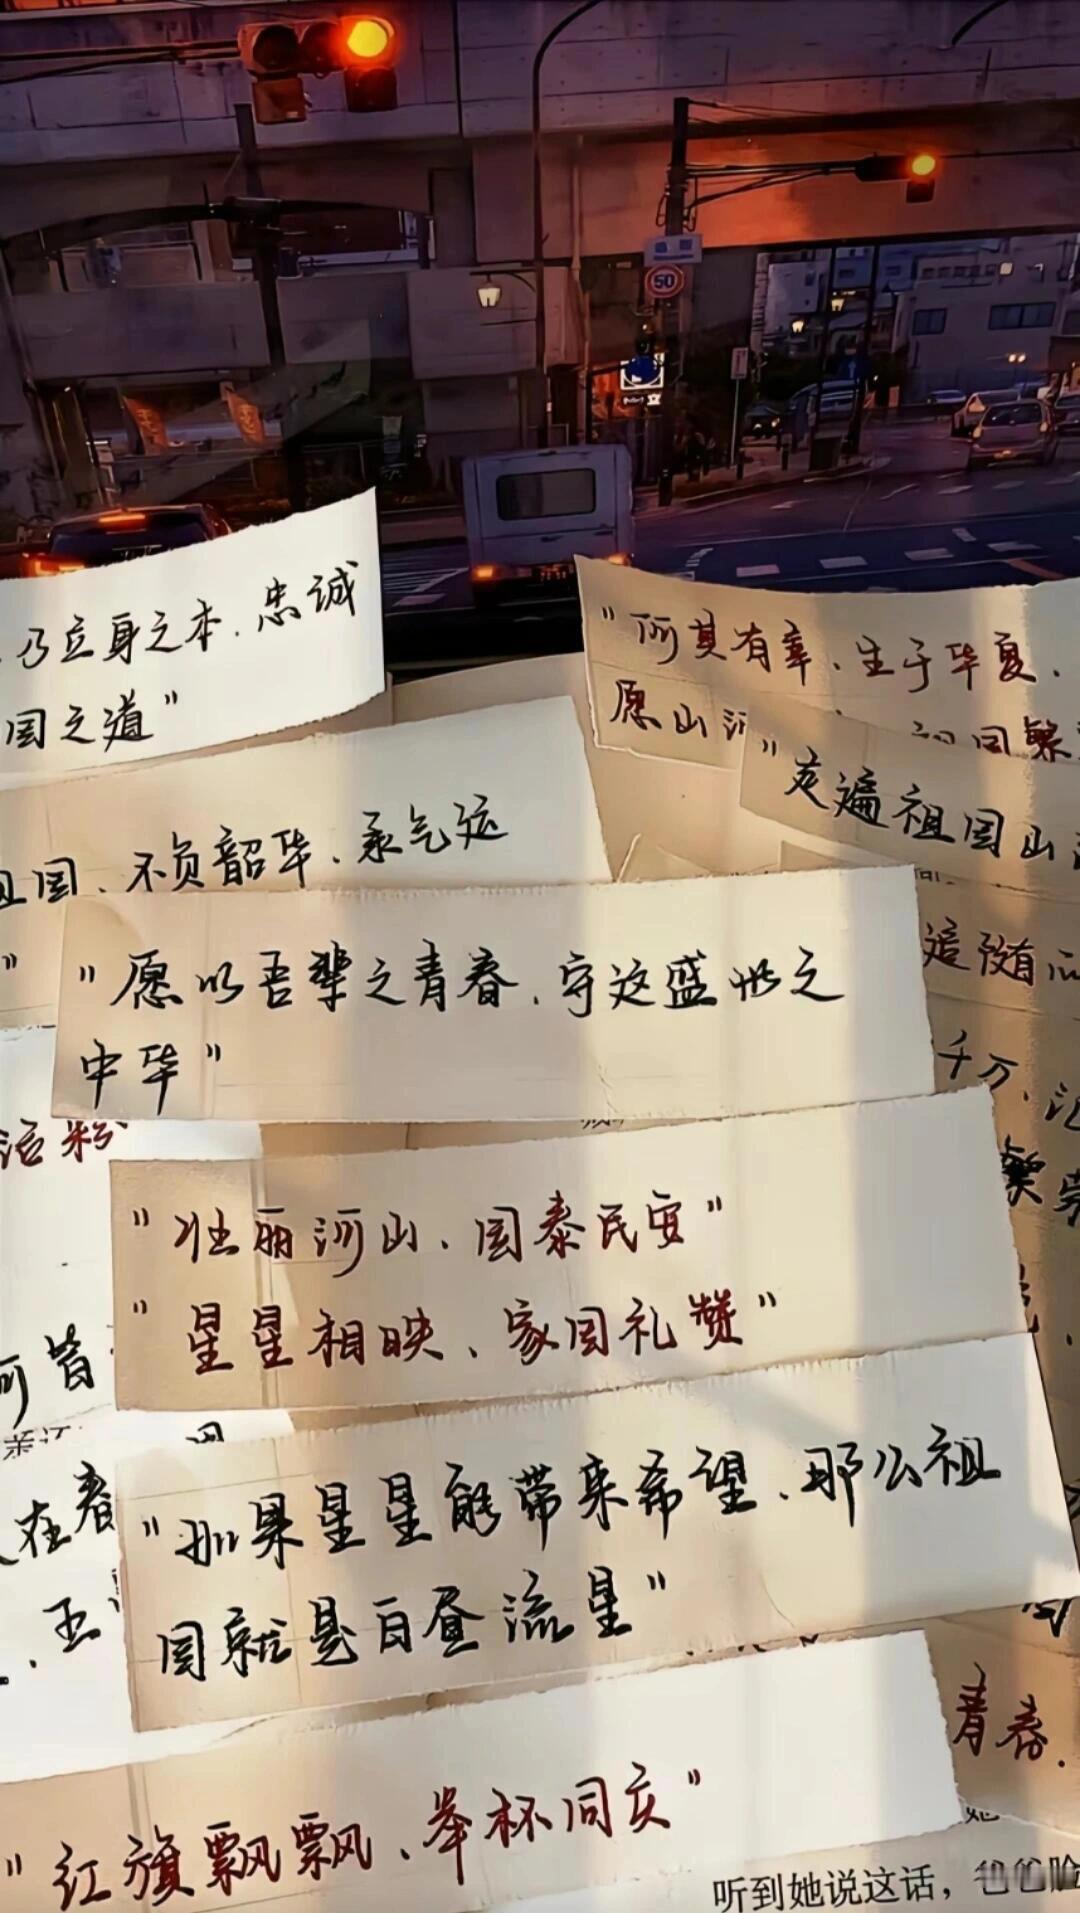 50
乃立身之本、忠诚
国之道”
“何其有幸、生于华夏、
愿山河
“走遍祖国山
祖国、不负韶华、承气运
”
追随
“愿以吾辈之青春、守这盛世之
中华”
千万、汇
活粉
繁荣
“壮丽河山、国泰民安”
“星星相映、家国礼赞”
河皆
在春
“如果星星能带来希望、那么祖
国就是白昼流星”
、五
青春、
“红旗飘飘、举杯同庆”
她
听到她说这话，爸爸脸